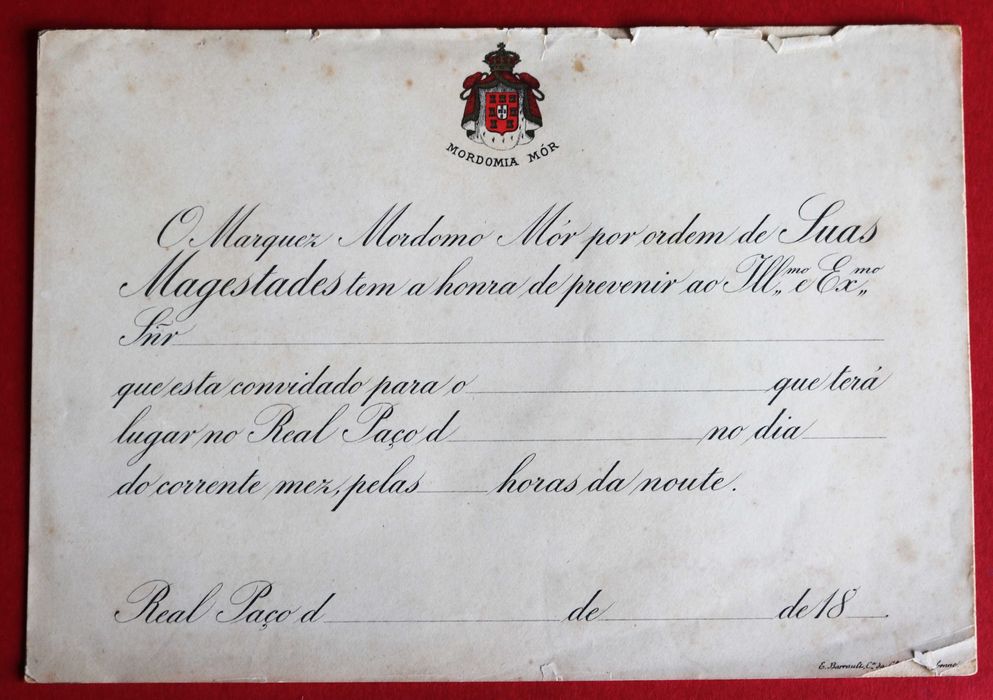 MORDOMIA MÓR
O Marquez Mordomo Mór por ordem de Suas
Magestades tem a honra de prevenir ao Ill.mo e Ex.mo
Sñr
que esta convidado para o que terá
lugar no Real Paço d no dia
do corrente mez, pelas horas da noute.
Real Paço d de de 18
E. Barrault, C.ta da